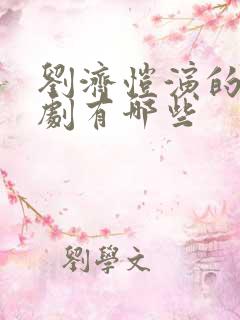 劉濟愷演的
劇有哪些
劉學文